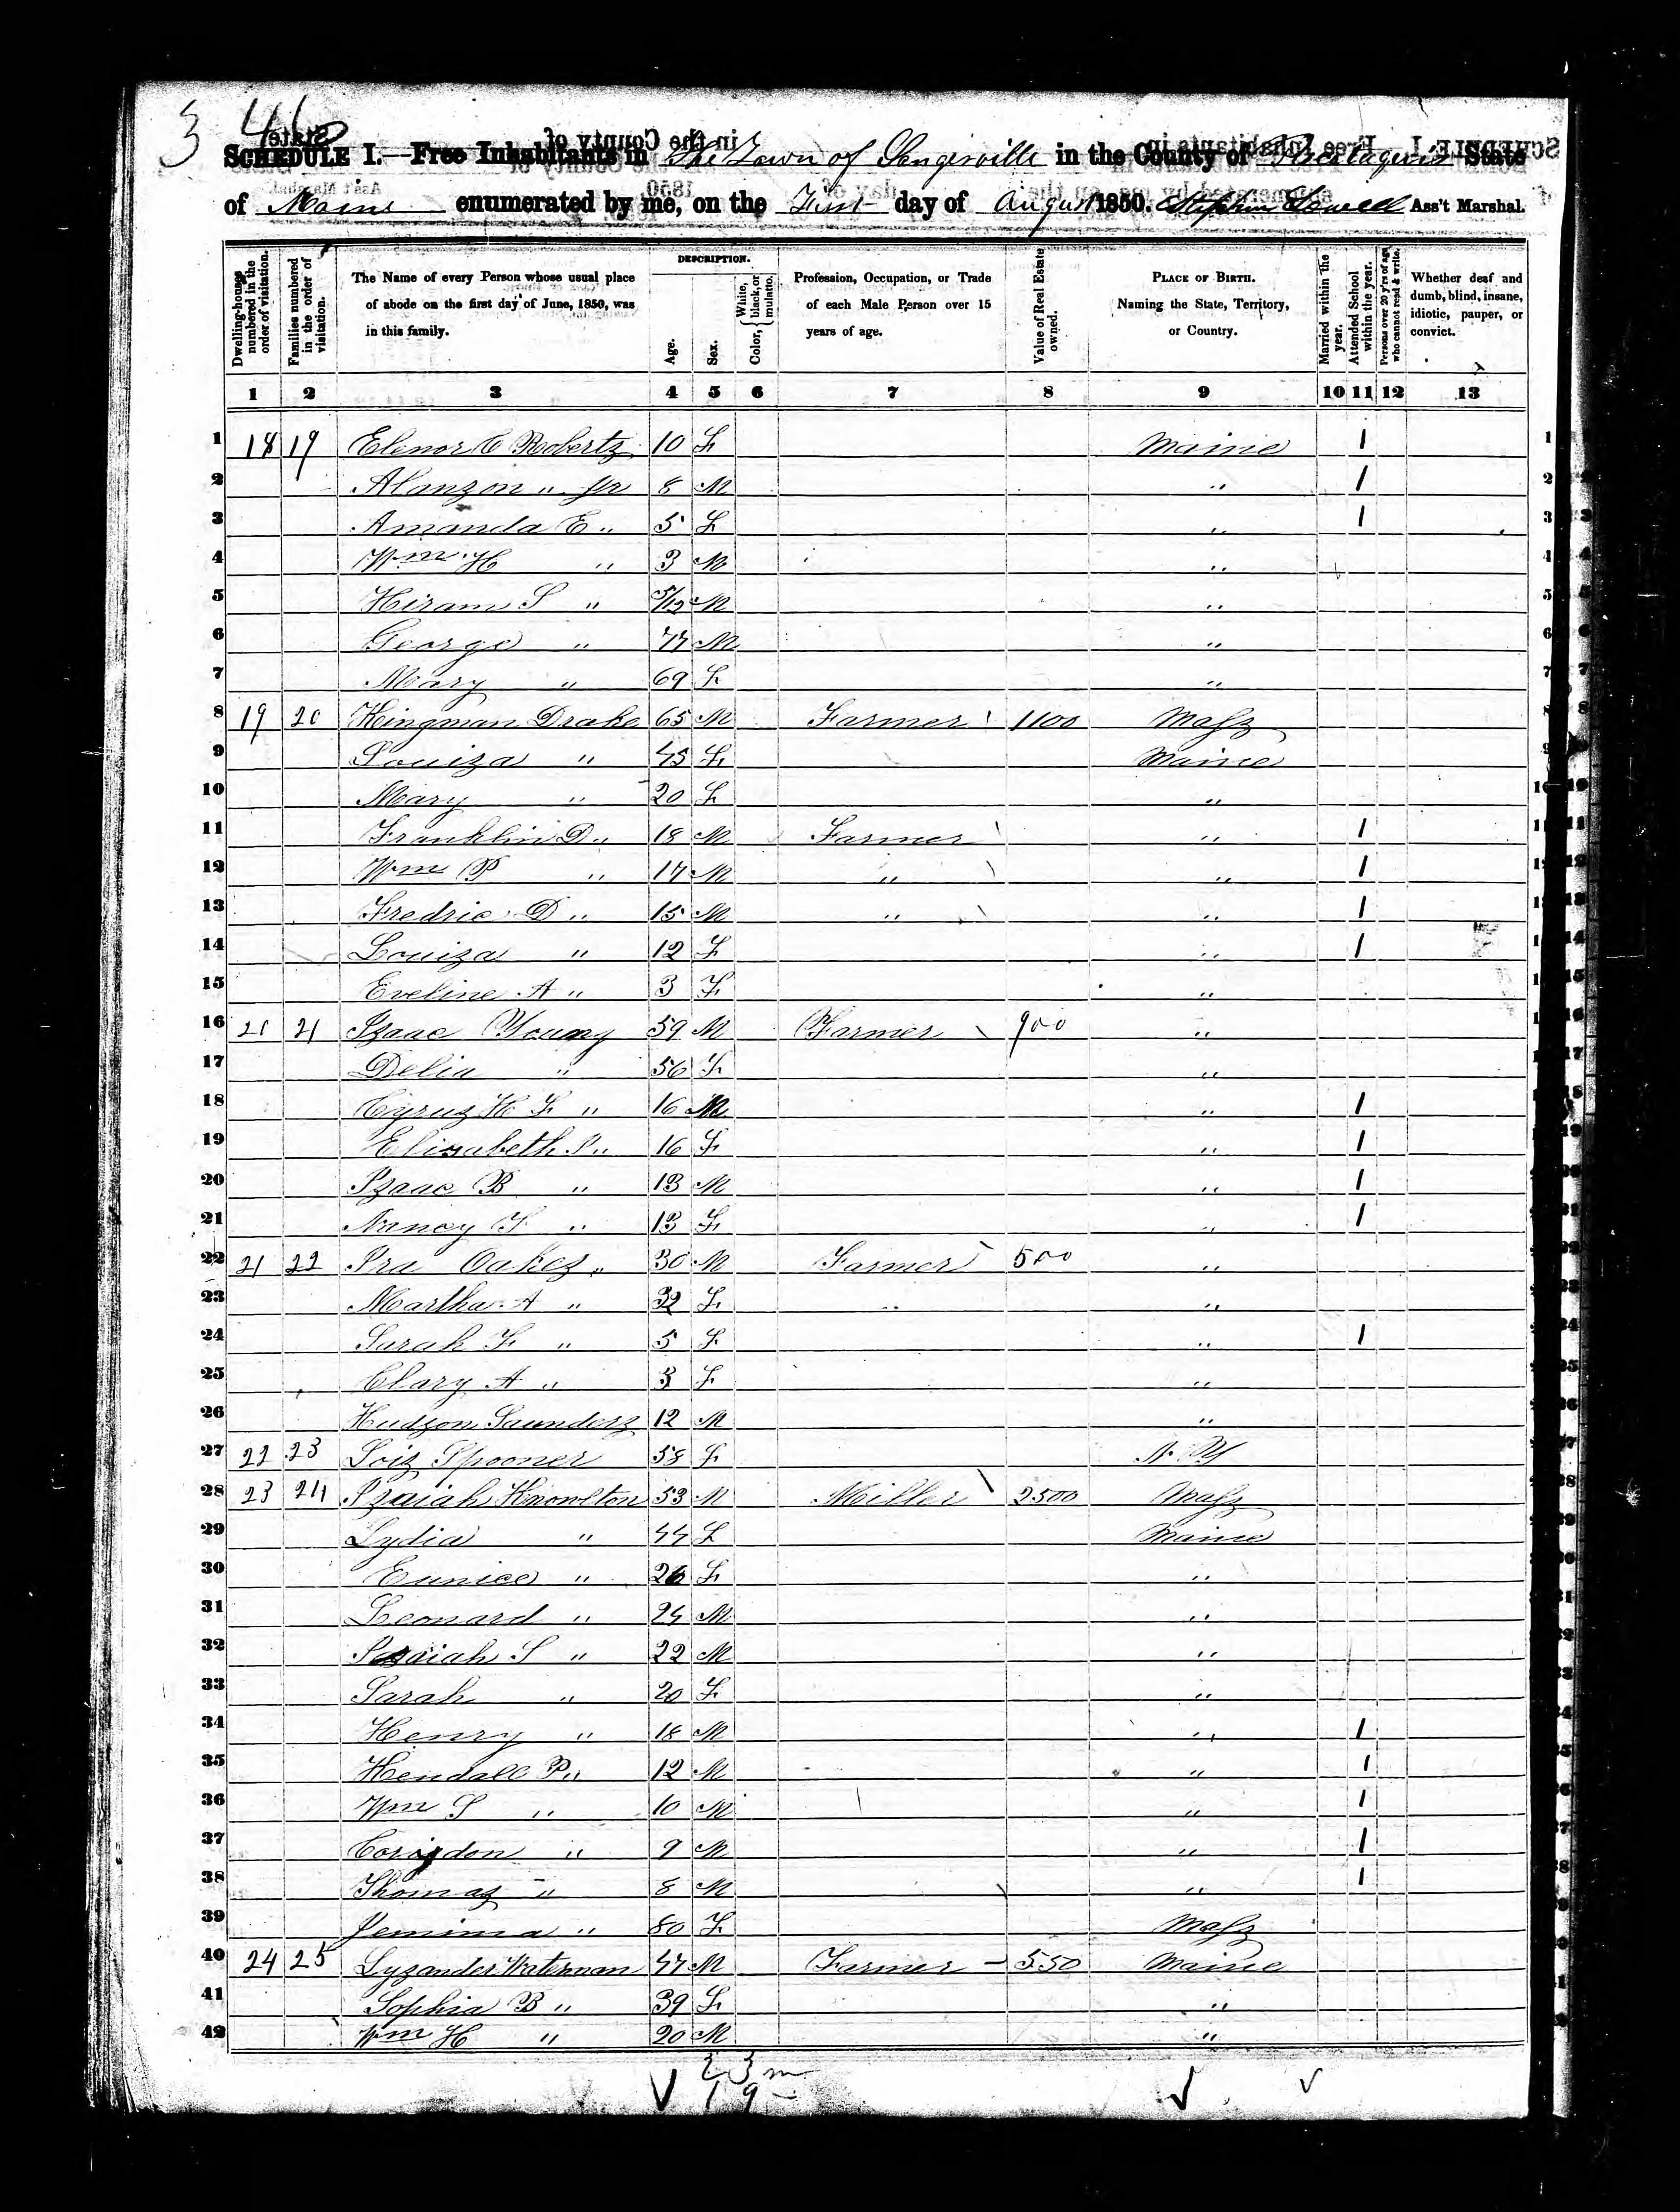 3 46
SCHEDULE I.—Free Inhabitants in The Town of Sangerville in the County of Piscataquis State
of Maine enumerated by me, on the First day of August 1850. Stephen Lowell Ass't Marshal.
DESCRIPTION.
Dwelling-houses numbered in the order of visitation. Families numbered in the order of visitation. The Name of every Person whose usual place of abode on the first day of June, 1850, was in this family. Age. Sex. Color, White, black, or mulatto. Profession, Occupation, or Trade of each Male Person over 15 years of age. Value of Real Estate owned. PLACE OF BIRTH. Naming the State, Territory, or Country. Married within the year. Attended School within the year. Persons over 20 y'rs of age who cannot read & write. Whether deaf and dumb, blind, insane, idiotic, pauper, or convict.
1 2 3 4 5 6 7 8 9 10 11 12 13
1 18 19 Elenor C Robertz 10 F Maine 1 1
2 Alanzon " Jr 8 M " 1 2
3 Amanda E " 5 F " 1 3
4 Wm H " 3 M " 4
5 Hiram S " 5/12 M " 5
6 George " 77 M " 6
7 Mary " 69 F " 7
8 19 20 Hingman Drake 65 M Farmer 1100 Masz 8
9 Louiza " 45 F Maine 9
10 Mary " 20 F " 10
11 Franklin D " 18 M Farmer " 1 11
12 Wm P " 17 M " " 1
13 Fredric D " 15 M " " 1
14 Louiza " 12 F " 1
15 Eveline A " 3 F "
16 20 21 Izaac Young 59 M Farmer 900 "
17 Delia " 56 F "
18 Cyruz H F " 16 M " 1
19 Elizabeth S " 16 F " 1
20 Izaac B " 13 M " 1
21 Nancy T " 13 F " 1
22 21 22 Ira Oakez " 30 M Farmer 500 "
23 Martha A " 32 F " "
24 Sarah F " 5 F " 1
25 Clary A " 3 F "
26 Hudzon Saunderz 12 M "
27 22 23 Loiz Spooner 58 F N. Y
28 23 24 Izaiah Knowlton 53 M Miller 2500 Masz
29 Lydia " 44 F Maine
30 Eunice " 26 F "
31 Leonard " 24 M "
32 Izaiah S " 22 M "
33 Sarah " 20 F "
34 Henry " 18 M " 1
35 Hendall P " 12 M " 1
36 Wm S " 10 M " 1
37 Corydon " 9 M " 1
38 Thomaz " 8 M " 1
39 Jemima " 80 F Masz
40 24 25 Lyzander Waterman 47 M Farmer 550 Maine
41 Sophia B " 39 F "
42 Wm H " 20 M "
23 m
19